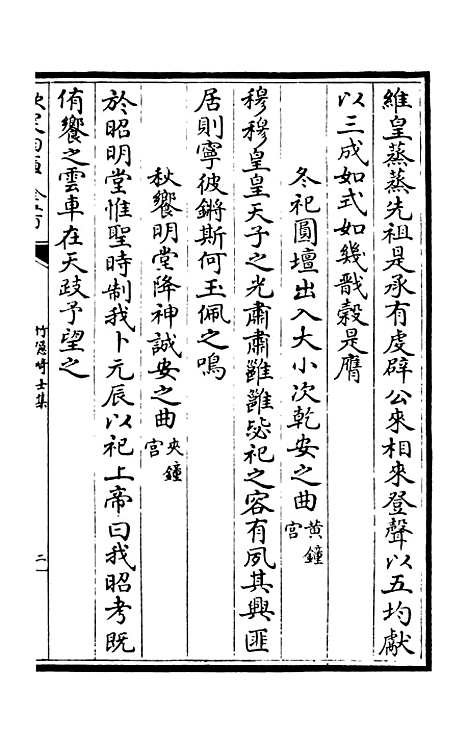 維皇蒸蒸先祖是承有虔辟公來相來登聲以五均獻
以三成如式如幾戩榖是膺
冬祀圓壇出入大小次乾安之曲黃鐘宫
穆穆皇皇天子之光肅肅雝雝毖祀之容有夙其興匪
居則寧彼鏘斯何玉佩之鳴
秋饗明堂降神誠安之曲夾鐘宫
於昭明堂惟聖時制我卜元辰以祀上帝曰我昭考既
侑饗之雲車在天跂予望之
竹隱畸士集
二